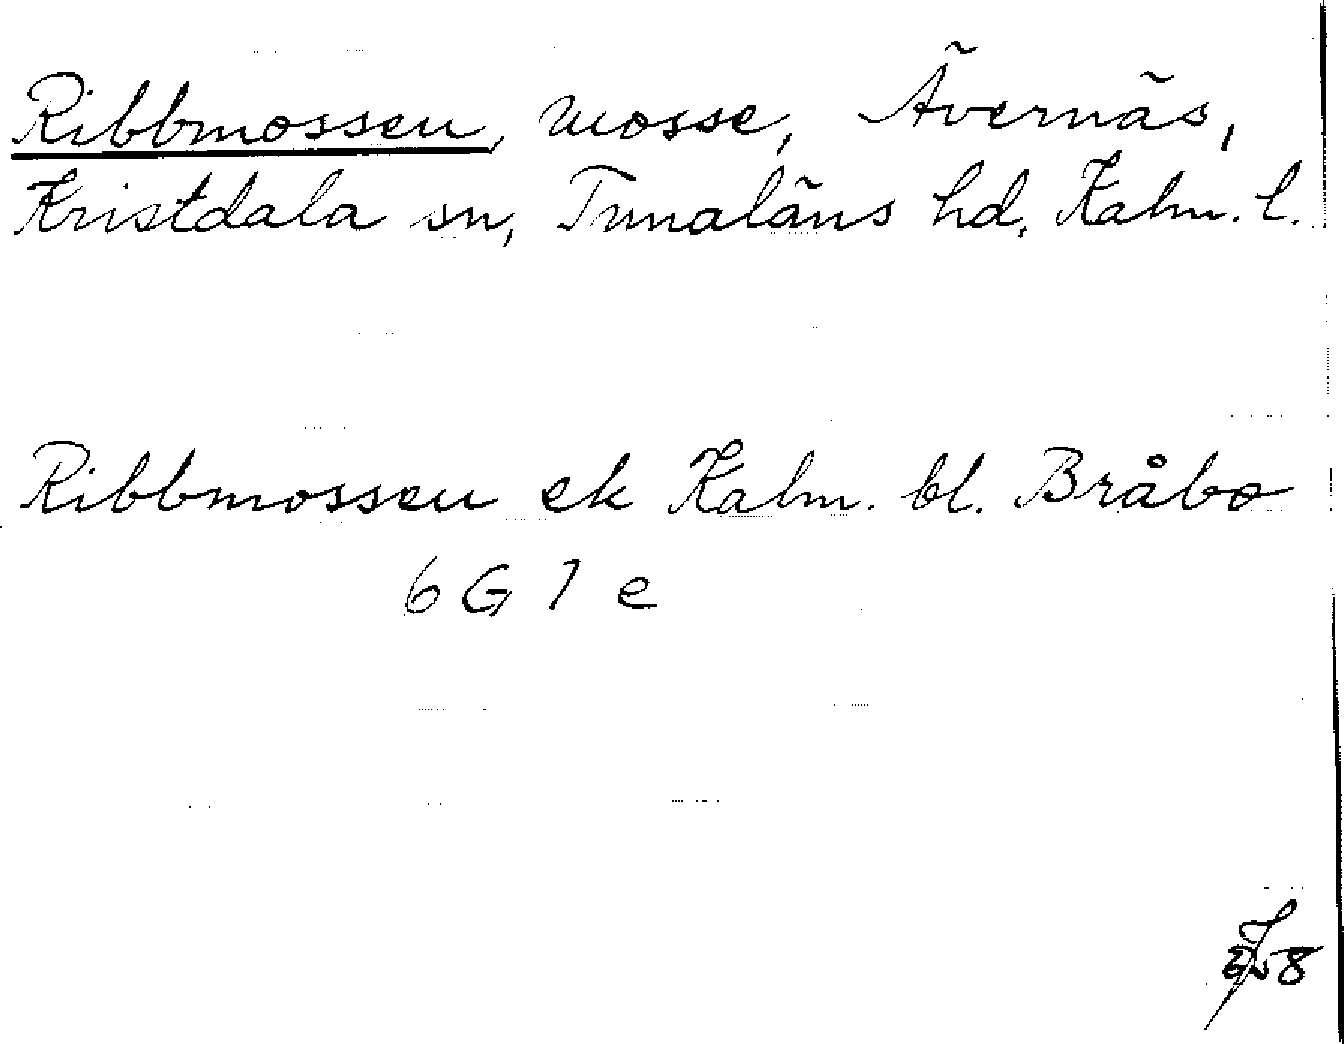 Ribbmossen, mosse, Ävernäs,
Kristdala sn, Tunaläns hd, Kalm. l.
Ribbmossen ek Kalm. bl. Bråbo
6 G 7 e